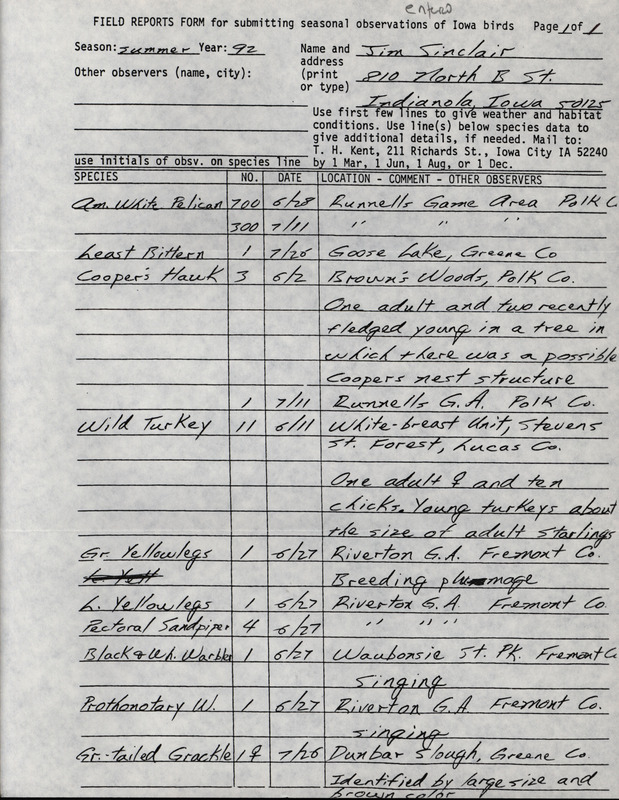 enero
FIELD REPORTS FORM for submitting seasonal observations of Iowa birds Page 1 of 1
Season: summer Year: 92 Name and Jim Sinclair
address
Other observers (name, city): (print 810 North B St.
or type)
Indianola, Iowa 50125
Use first few lines to give weather and habitat
conditions. Use line(s) below species data to
give additional details, if needed. Mail to:
T. H. Kent, 211 Richards St., Iowa City IA 52240
use initials of obsv. on species line by 1 Mar, 1 Jun, 1 Aug, or 1 Dec.
SPECIES NO. DATE LOCATION - COMMENT - OTHER OBSERVERS
Am. White Pelican 700 6/28 Runnells Game Area Polk C
300 7/11 " " "
Least Bittern 1 7/26 Goose Lake, Greene Co
Cooper's Hawk 3 6/2 Brown's Woods, Polk Co.
One adult and two recently
fledged young in a tree in
which there was a possible
Coopers nest structure
1 7/11 Runnells G.A. Polk Co.
Wild Turkey 11 6/11 White-breast Unit, Stevens
St. Forest, Lucas Co.
One adult ♀ and ten
chicks. Young turkeys about
the size of adult starlings
Gr. Yellowlegs 1 6/27 Riverton G.A. Fremont Co.
L. Yell Breeding plumage
L. Yellowlegs 1 6/27 Riverton G.A. Fremont Co
Pectoral Sandpiper 4 6/27 " " "
Black & Wh. Warbler 1 6/27 Waubonsie St. Pk. Fremont C
Singing
Prothonotary W. 1 6/27 Riverton G.A. Fremont Co.
singing
Gr.-tailed Grackle 1♀ 7/26 Dunbar Slough, Greene Co.
Identified by large size and
brown color